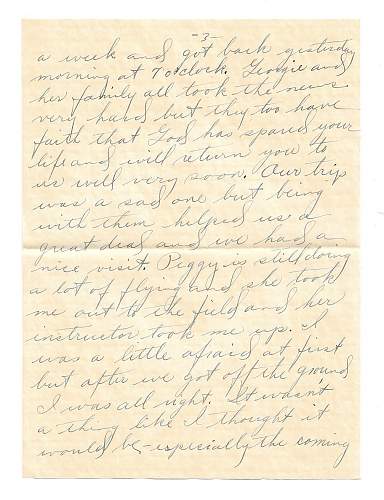 -3-
a week and got back yesterday
morning at 7 o'clock. Georgie and
her family all took the news
very hard but they too have
faith that God has spared your
life and will return you to
us well very soon. Our trip
was a sad one but being
with them helped us a
great deal and we had a
nice visit. Peggy is still doing
a lot of flying and she took
me out to the field and her
instructor took me up. I
was a little afraid at first
but after we got off the ground
I was all right. It wasn't
a thing like I thought it
would be - especially the coming